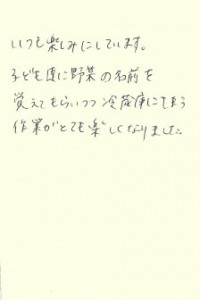 いつも楽しみにしています。
子ども達に野菜の名前を
覚えてもらいつつ冷蔵庫にしまう
作業がとても楽しくなりました。